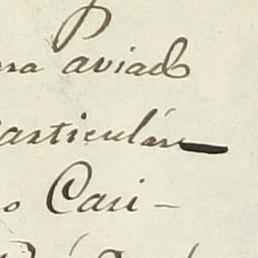 P
ra aviado
articulár
o Cari-